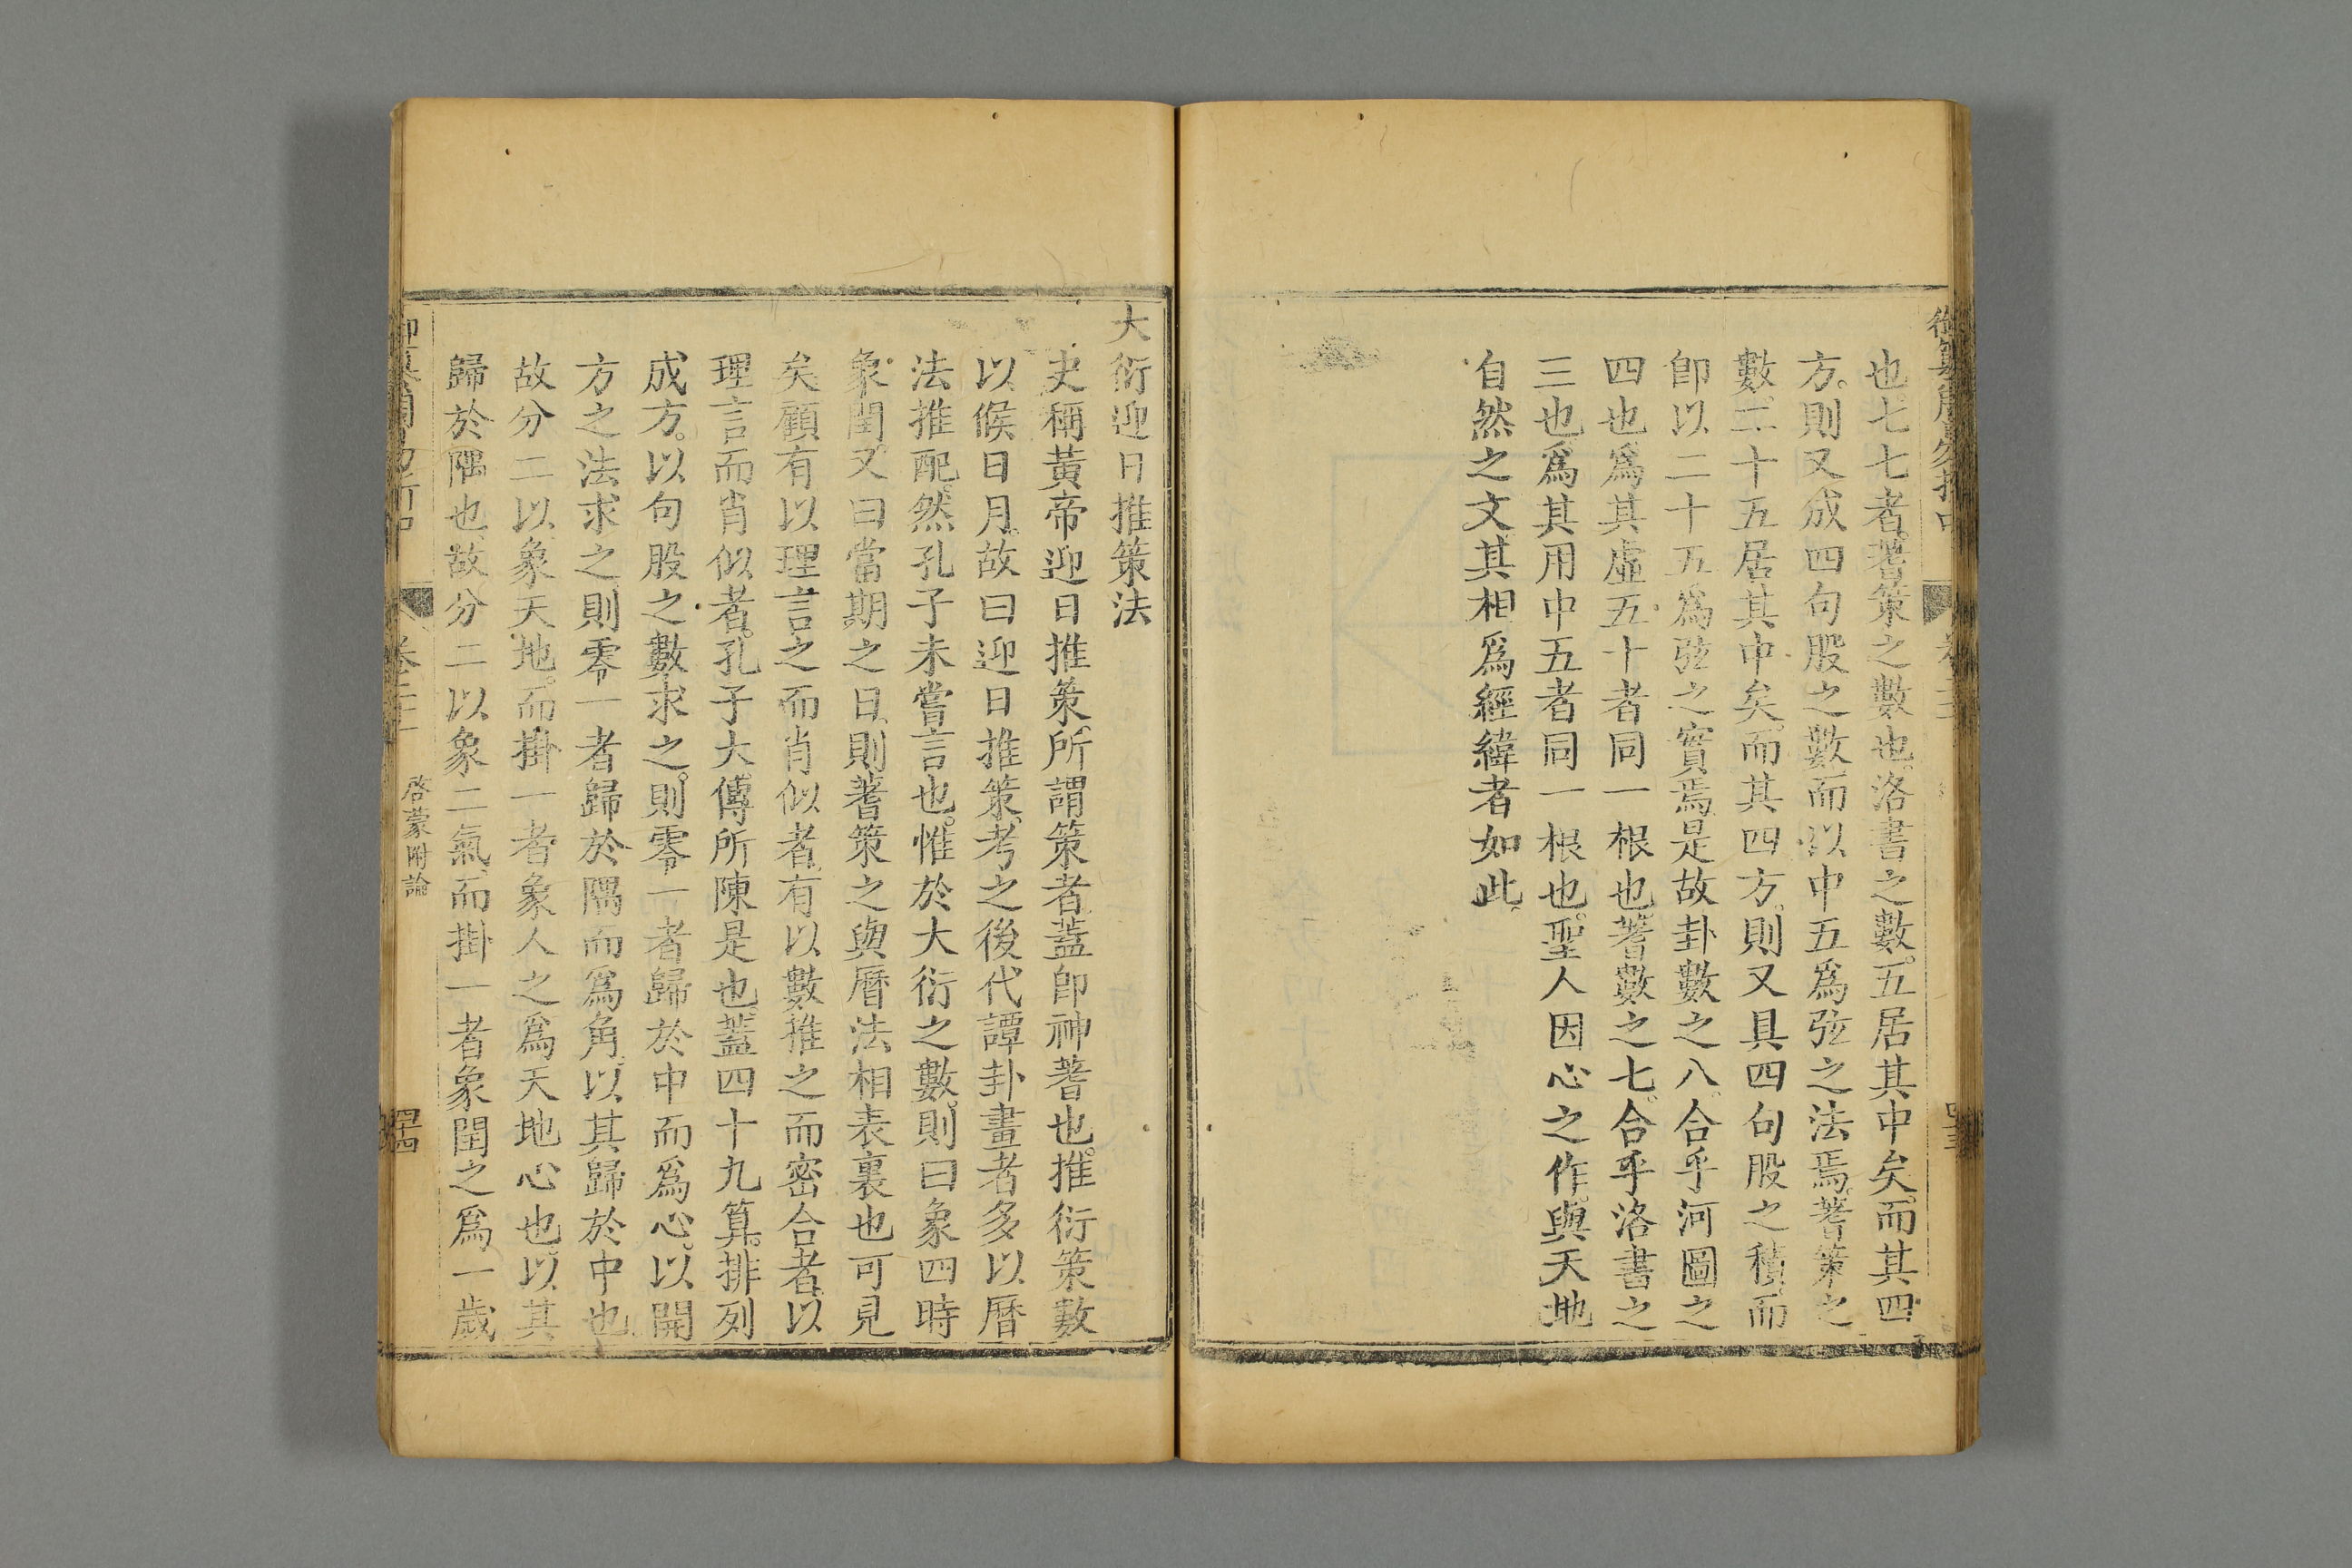 也。七七者。蓍策之數也。洛書之數。五居其中矣。而其四
方。則又成四句股之數。而以中五爲弦之法焉。蓍策之
數。二十五居其中矣。而其四方。則又具四句股之積。而
卽以二十五爲弦之實焉。是故卦數之八。合乎河圖之
四也。爲其虛五十者同一根也。蓍數之七。合乎洛書之
三也。爲其用中五者同一根也。聖人因心之作。與天地
自然之文。其相爲經緯者如此。
大衍迎日推策法
史稱黃帝迎日推策。所謂策者。蓋卽神蓍也。推衍策數
以候日月。故曰迎日推策。考之後代譚卦畫者多以曆
法推配。然孔子未嘗言也。惟於大衍之數。則曰象四時
象閏。又曰當期之日。則蓍策之與曆法相表裏也可見
矣。顧有以理言之而肖似者。有以數推之而密合者。以
理言而肖似者。孔子大傳所陳是也。蓋四十九算。排列
成方。以句股之數求之。則零一者歸於中而爲心。以開
方之法求之。則零一者歸於隅而爲角。以其歸於中也
故分二以象天地。而掛一者象人之爲天地心也。以其
歸於隅也。故分二以象二氣。而掛一者象閏之爲一歲
啓蒙附論
四十四